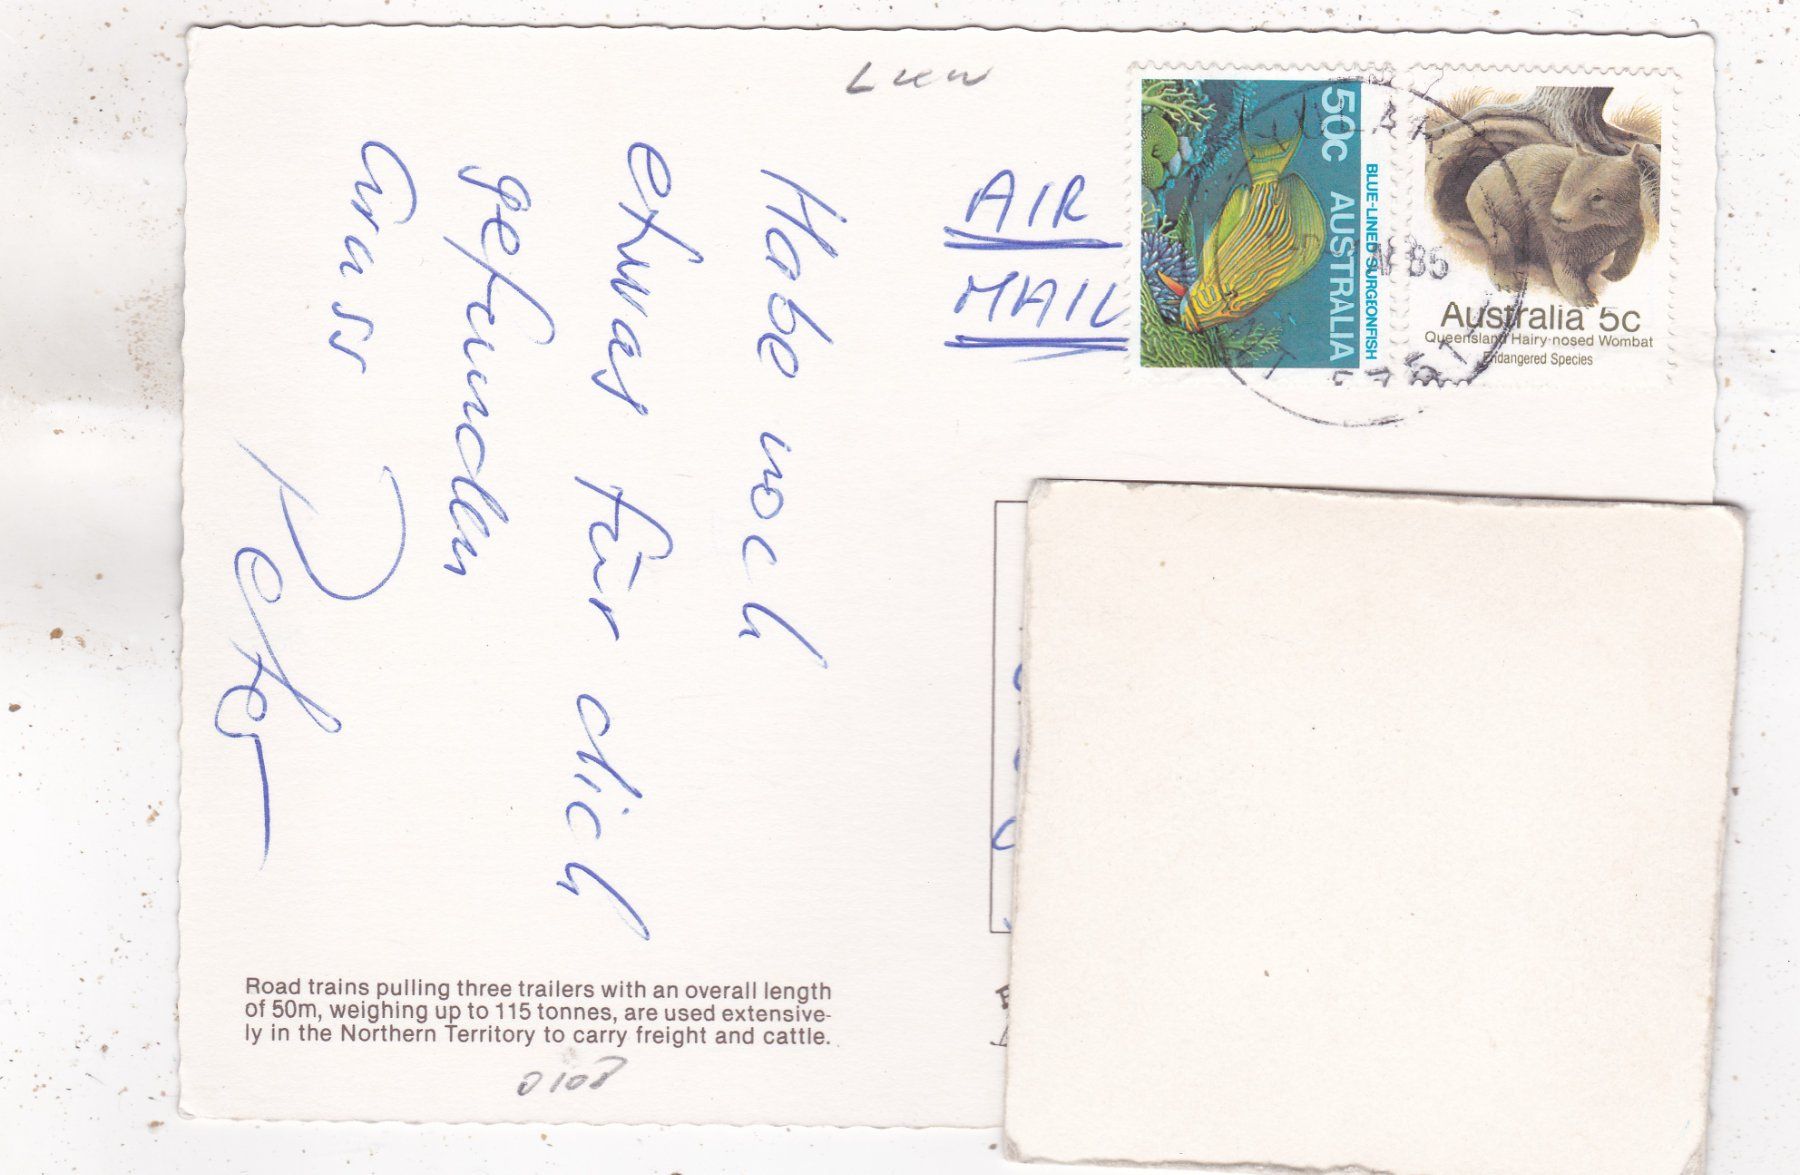 LKW
AIR
MAIL
50c AUSTRALIA
BLUE-LINED SURGEONFISH
Australia 5c
Queensland Hairy-nosed Wombat
Endangered Species
Habe noch
etwas für dich
gefunden
Gruss
Peter
Road trains pulling three trailers with an overall length
of 50m, weighing up to 115 tonnes, are used extensive-
ly in the Northern Territory to carry freight and cattle.
0108